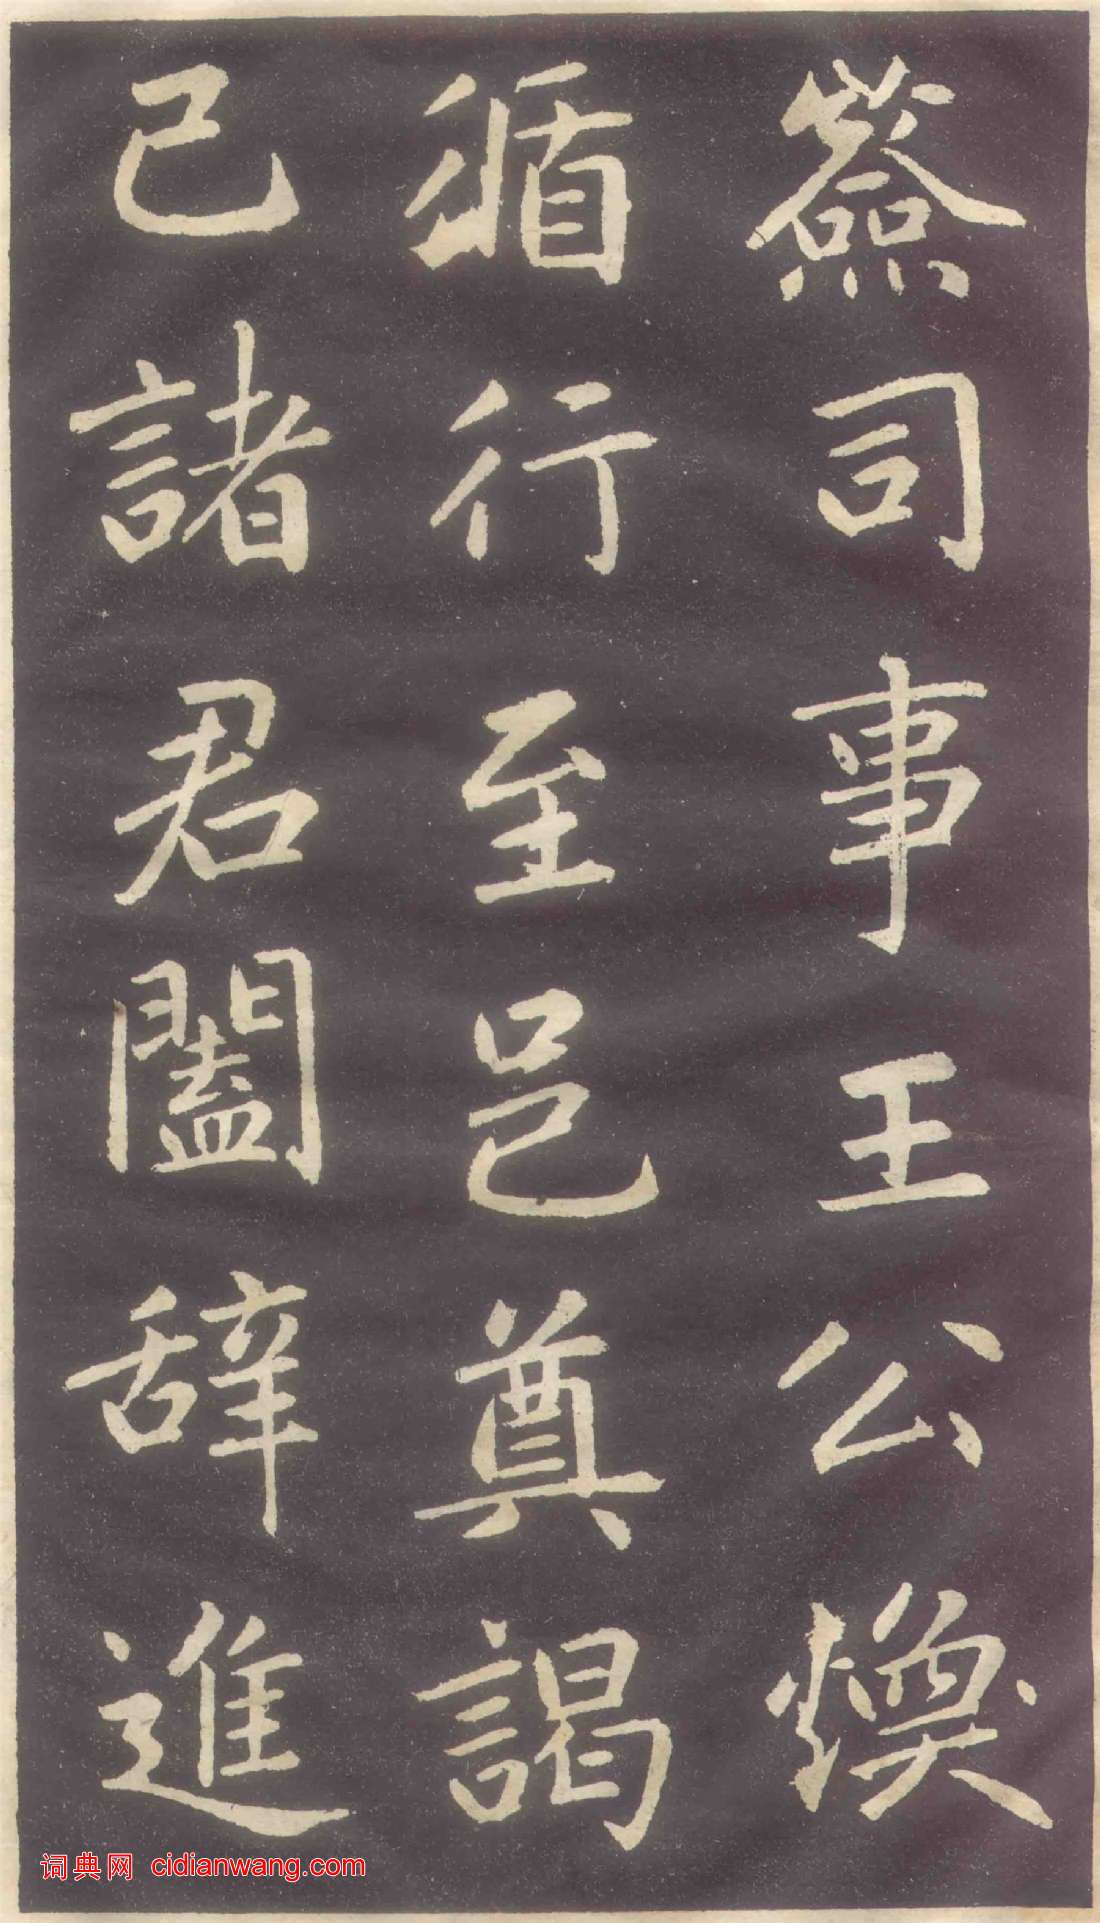 僉司事王公煥
循行至邑奠謁
已諸君闔辞進
词典网 cidianwang.com